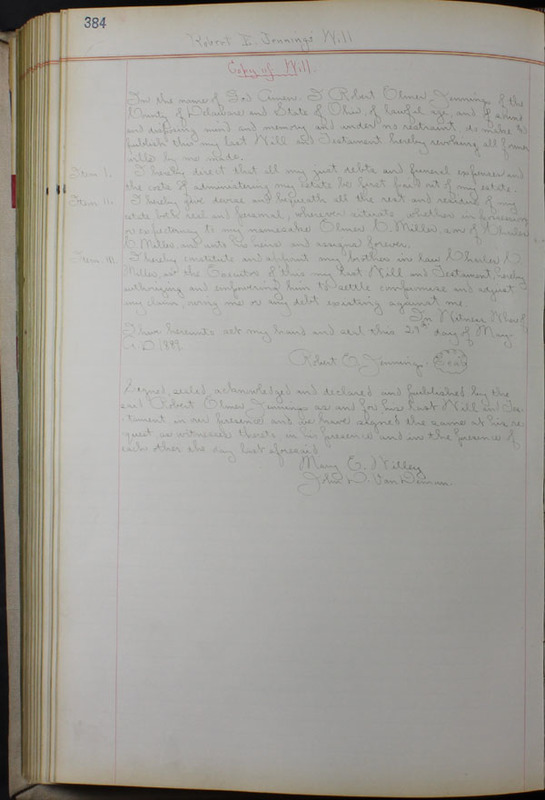 384
Robert E. Jennings Will
Copy of Will.
In the name of God Amen. I Robert Olmer Jennings of the
County of Delaware and State of Ohio, of lawful age, and of sound
and disposing mind and memory and under no restraint do make &
publish this my Last Will and Testament hereby revoking all former
wills by me made.
Item I. I hereby direct that all my just debts and funeral expenses and
the costs of administering my estate be first paid out of my estate.
Item II. I hereby give devise and bequeath all the rest and residue of my
estate both real and personal, wherever situate, whether in possession
or expectancy to my namesake Olmer C. Miller, son of Charles
C. Miller and unto his heirs and assigns forever.
Item III. I hereby constitute and appoint my brother in law Charles C.
Miller, as the Executor of this my Last Will and Testament, hereby
authorizing and empowering him to settle compromise and adjust
any claim, owing me or any debt existing against me.
In Witness Whereof
I have hereunto set my hand and seal this 28th day of May
A.D. 1889.
Robert O. Jennings Seal
Signed, sealed, acknowledged and declared and published by the
said Robert Olmer Jennings as and for his Last Will and Tes-
tament in our presence and we have signed the same at his re-
quest as witnesses thereto in his presence and in the presence of
each other the day last aforesaid
Mary E. Willey
John D. Van Deman.